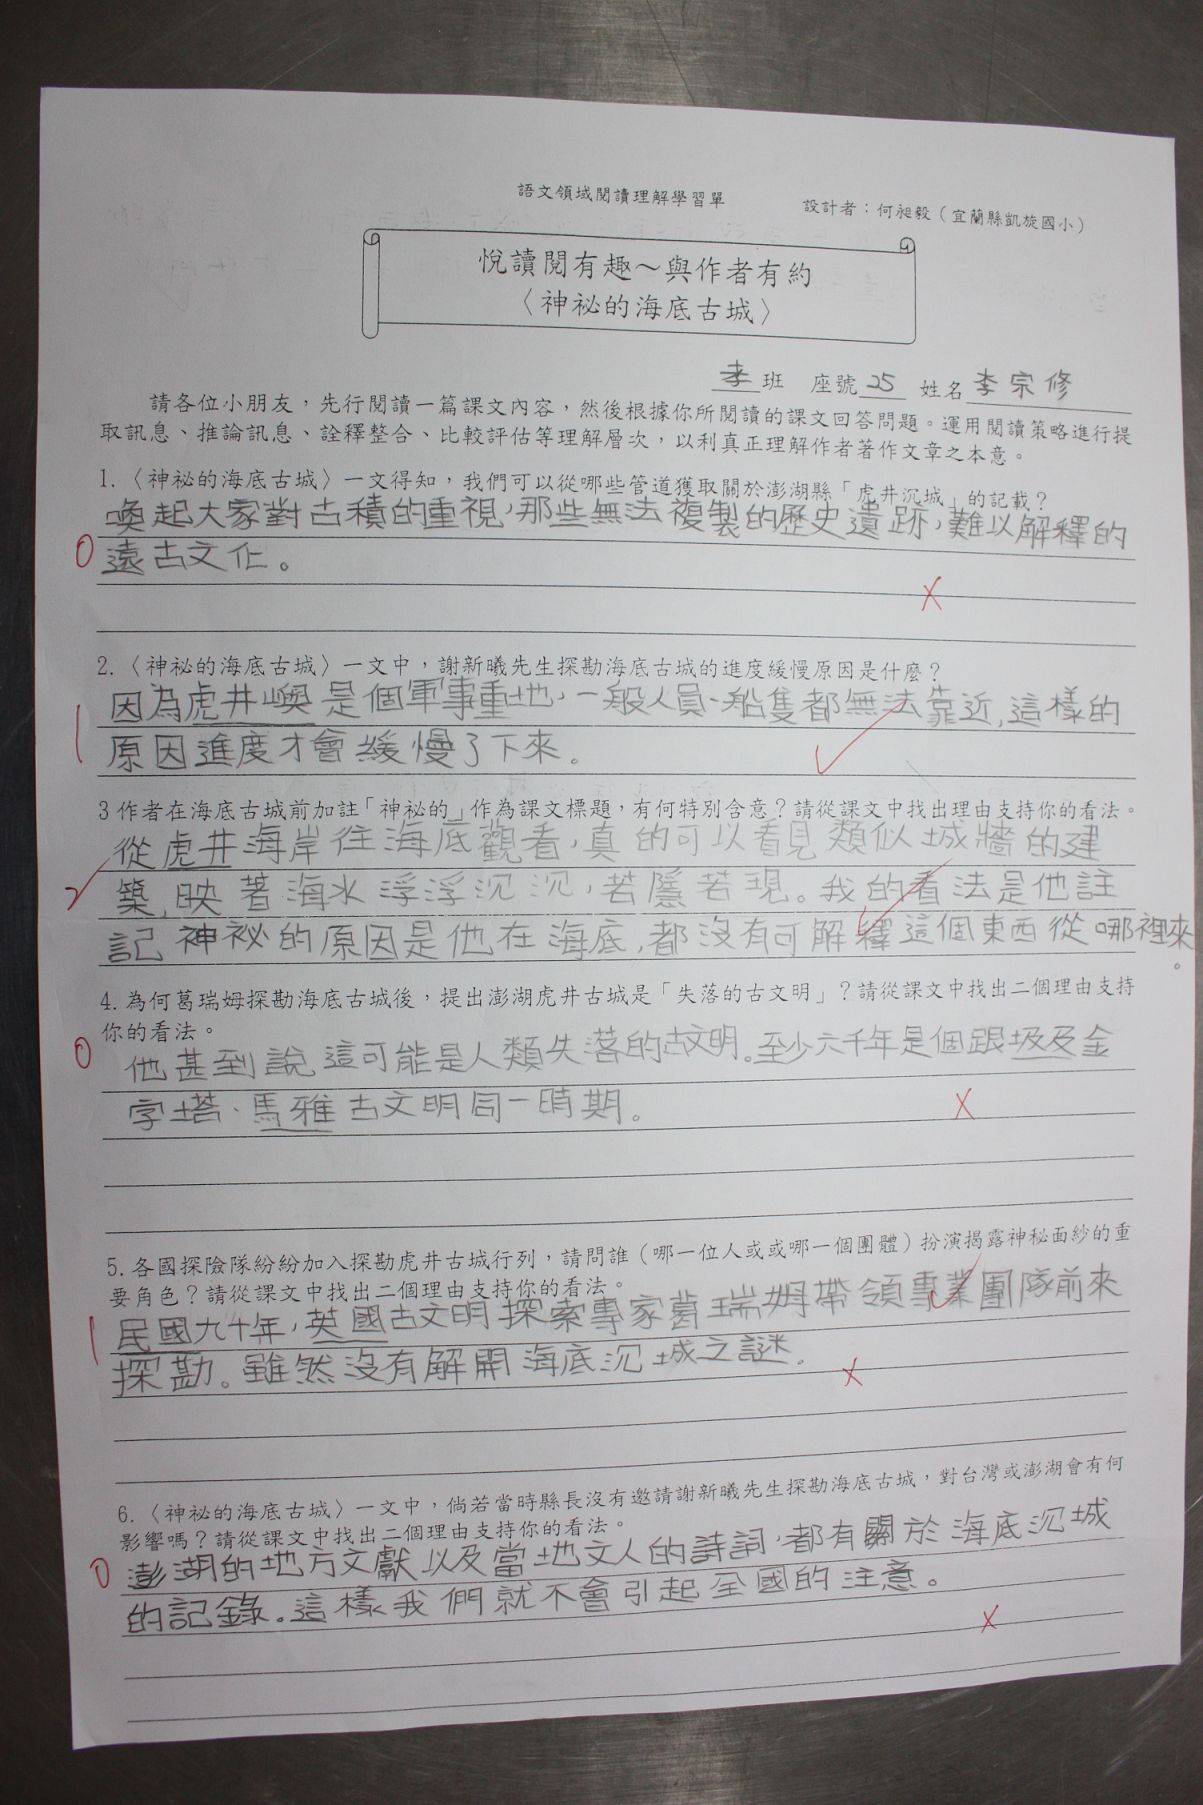 語文領域閱讀理解學習單
設計者：何昶毅（宜蘭縣凱旋國小）
悅讀閱有趣～與作者有約
〈神祕的海底古城〉
孝班 座號25 姓名李宗修
請各位小朋友，先行閱讀一篇課文內容，然後根據你所閱讀的課文回答問題。運用閱讀策略進行提
取訊息、推論訊息、詮釋整合、比較評估等理解層次，以利真正理解作者著作文章之本意。
1.〈神祕的海底古城〉一文得知，我們可以從哪些管道獲取關於澎湖縣「虎井沉城」的記載？
喚起大家對古積的重視，那些無法複製的歷史遺跡，難以解釋的
0 遠古文化。
2.〈神祕的海底古城〉一文中，謝新曦先生探勘海底古城的進度緩慢原因是什麼？
因為虎井嶼是個軍事重地，一般人員、船隻都無法靠近，這樣的
1 原因進度才會緩慢了下來。
3 作者在海底古城前加註「神祕的」作為課文標題，有何特別含意？請從課文中找出理由支持你的看法。
從虎井海岸往海底觀看，真的可以看見類似城牆的建
2 築，映著海水浮浮沉沉，若隱若現。我的看法是他註
記神祕的原因是他在海底，都沒有可解釋這個東西從哪裡來。
4.為何葛瑞姆探勘海底古城後，提出澎湖虎井古城是「失落的古文明」？請從課文中找出二個理由支持
你的看法。
0 他甚到說這可能是人類失落的古文明。至少六千年是個跟圾及金
字塔、馬雅古文明同一時期。
5.各國探險隊紛紛加入探勘虎井古城行列，請問誰（哪一位人或或哪一個團體）扮演揭露神秘面紗的重
要角色？請從課文中找出二個理由支持你的看法。
1 民國九十年，英國古文明探索專家葛瑞姆帶領專業團隊前來
探勘。雖然沒有解開海底沉城之謎。
6.〈神祕的海底古城〉一文中，倘若當時縣長沒有邀請謝新曦先生探勘海底古城，對台灣或澎湖會有何
影響嗎？請從課文中找出二個理由支持你的看法。
0 澎湖的地方文獻以及當地文人的詩詞，都有關於海底沉城
的記錄。這樣我們就不會引起全國的注意。